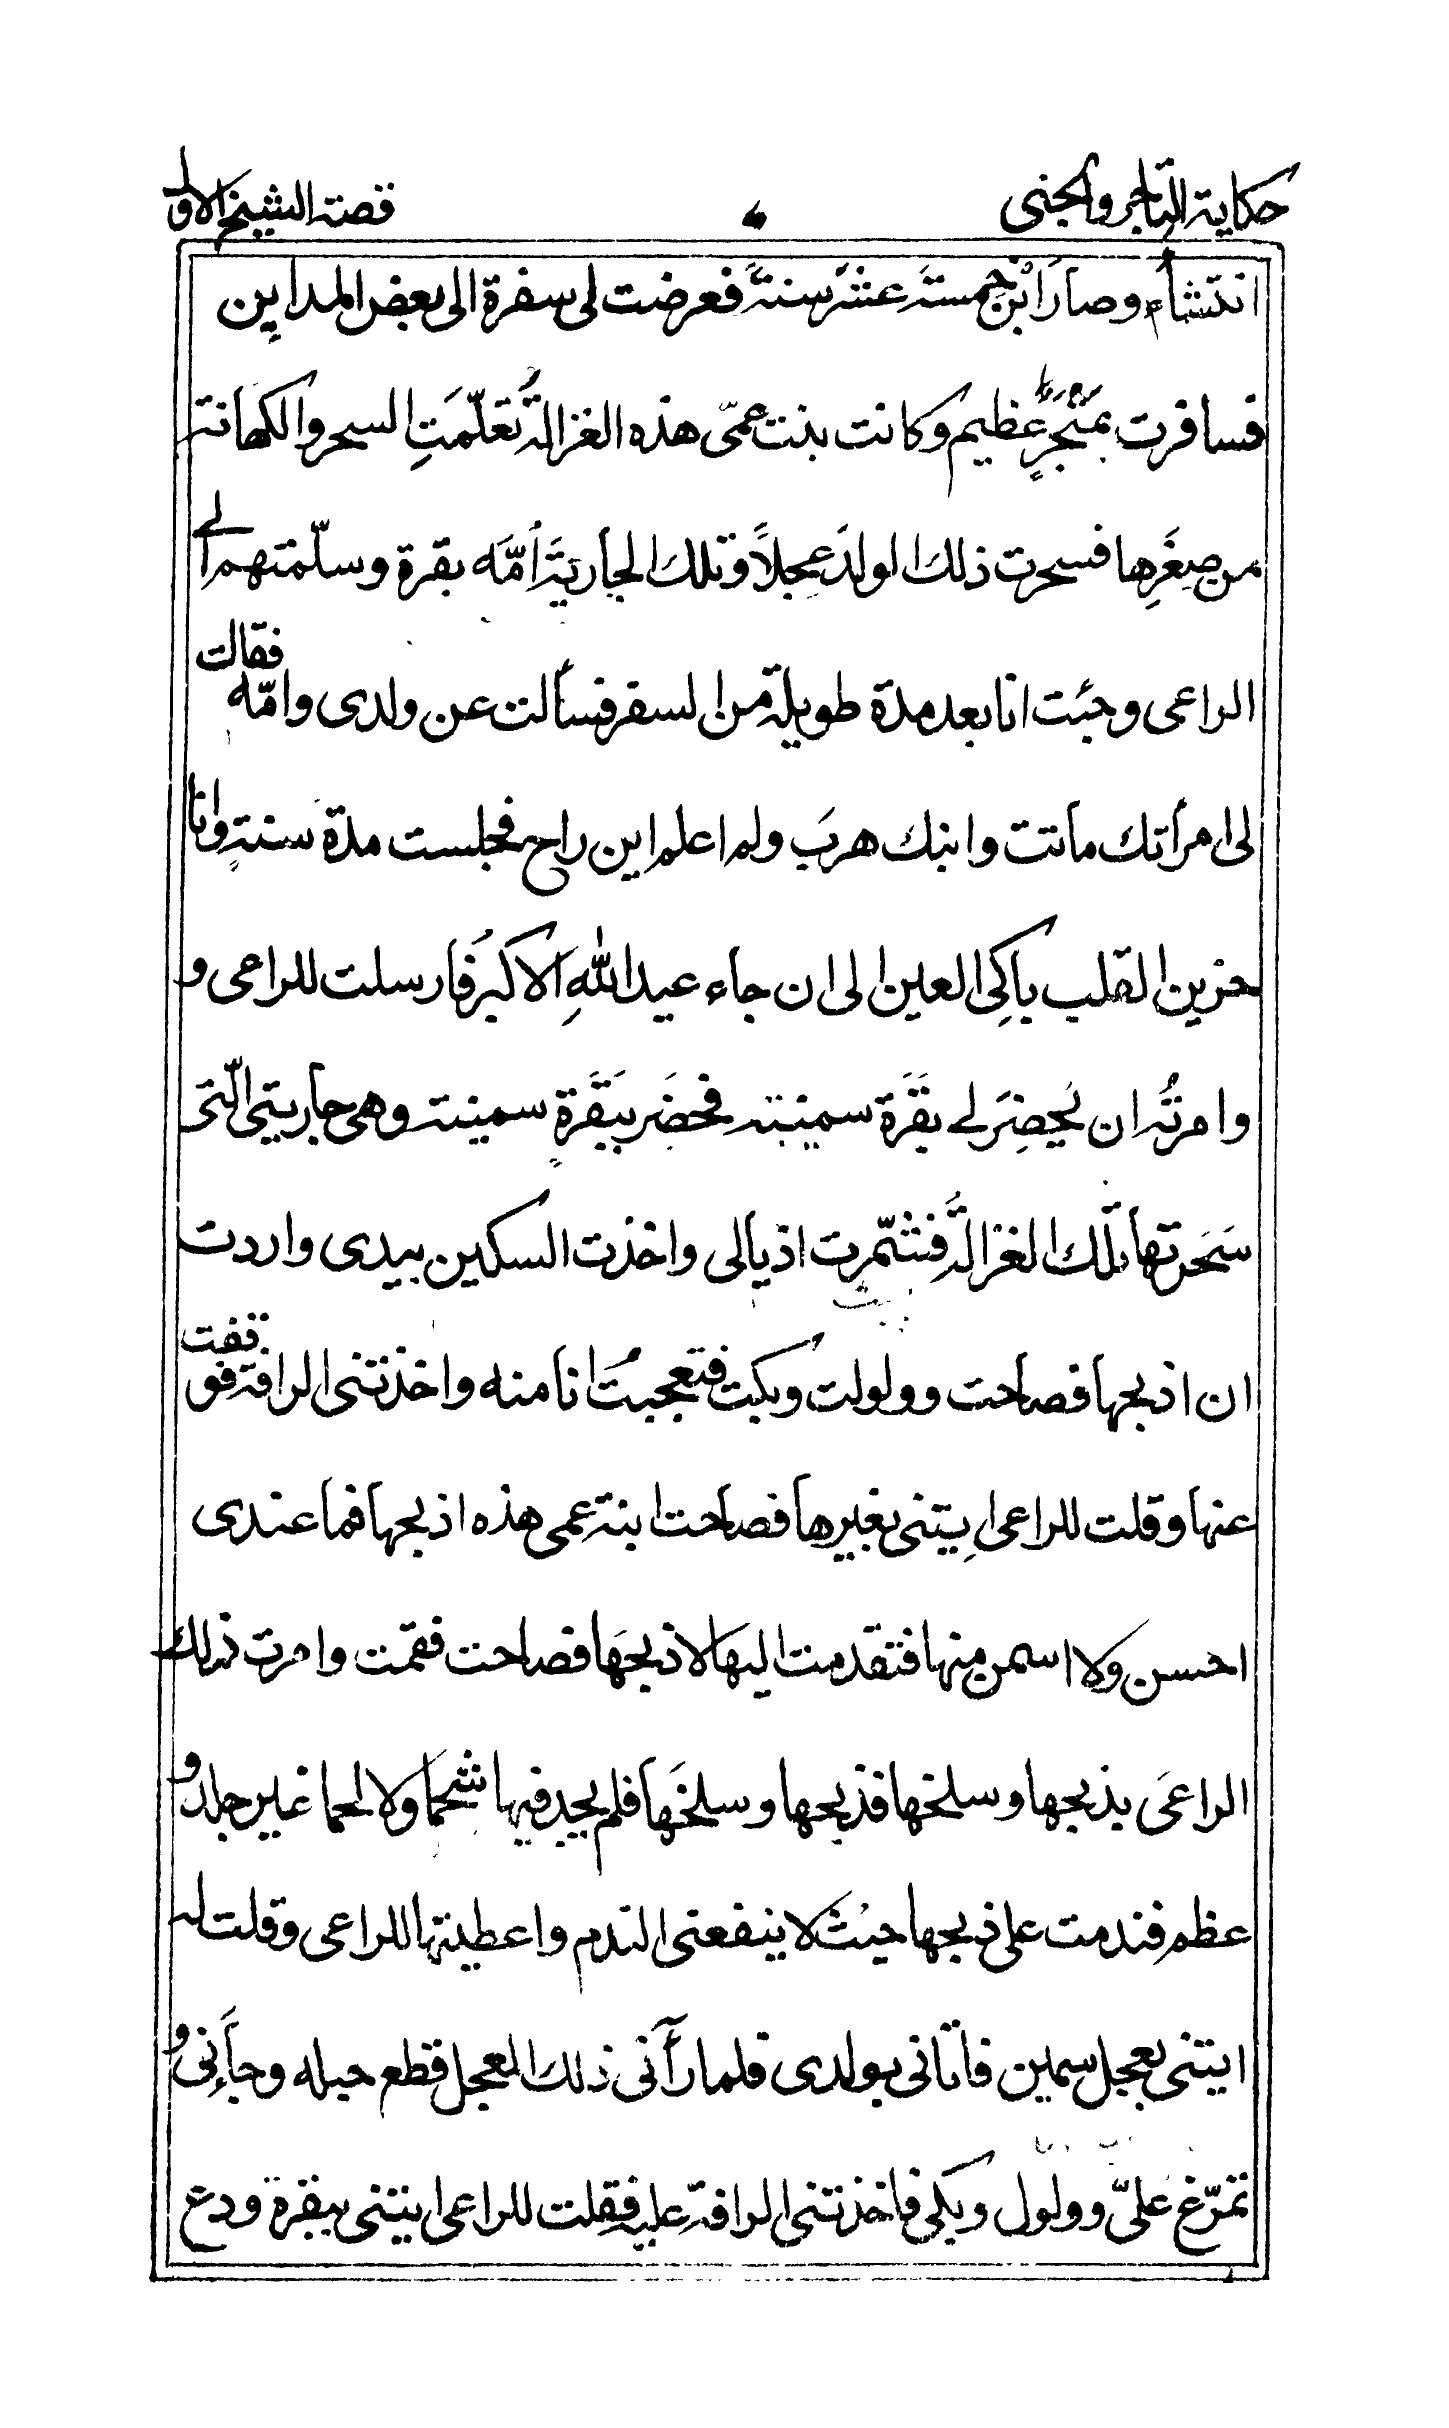 حكاية التاجر والجنى
قصة الشيخ الاول
انتشاء وصار ابن خمسة عشر سنة فعرضت لى سفرة الى بعض المداين
فسافرت بمتجر عظيم وكانت بنت عمّى هذه الغزالة تعلّمت السحر والكهانة
من صغرها فسحرت ذلك الولد عجلاً وتلك الجارية أمّه بقرة وسلّمتهم الے
الراعى وجئت انا بعد مدة طويلة من السفر فسألت عن ولدى وامّه فقالت
لى امرأتك ماتت وابنك هرب ولم اعلم اين راح فجلست مدة سنة وانا
حزين القلب باكى العين الى ان جاء عيد الله الاكبر فارسلت للراعى و
وامرته ان يحضر لے بقرة سمينة فحضر ببقرة سمينة وهى جاريتى الّتى
سحرتها تلك الغزالة فشمّرت اذيالى واخذت السكين بيدى واردت
ان اذبحها فصاحت وولولت وبكت فتعجبت انا منه واخذتنى الرافة فوقفت
عنها وقلت للراعى ايتنى بغيرها فصاحت ابنة عمى هذه اذبحها فما عندى
احسن ولا اسمن منها فتقدمت اليها لاذبحها فصاحت فقمت وامرت ذلك
الراعى بذبحها وسلخها فذبحها وسلخها فلم يجد فيها شحما ولا لحما غير جلد و
عظم فندمت على ذبحها حيث لا ينفعنى الندم واعطيتها للراعى وقلت له
ايتنى بعجل سمين فاتانى بولدى فلما رأنى ذلك العجل قطع حبله وجأنى و
تمرّغ علىّ وولول وبكى فاخذتنى الرافة عليه فقلت للراعى ايتنى ببقرة ودع